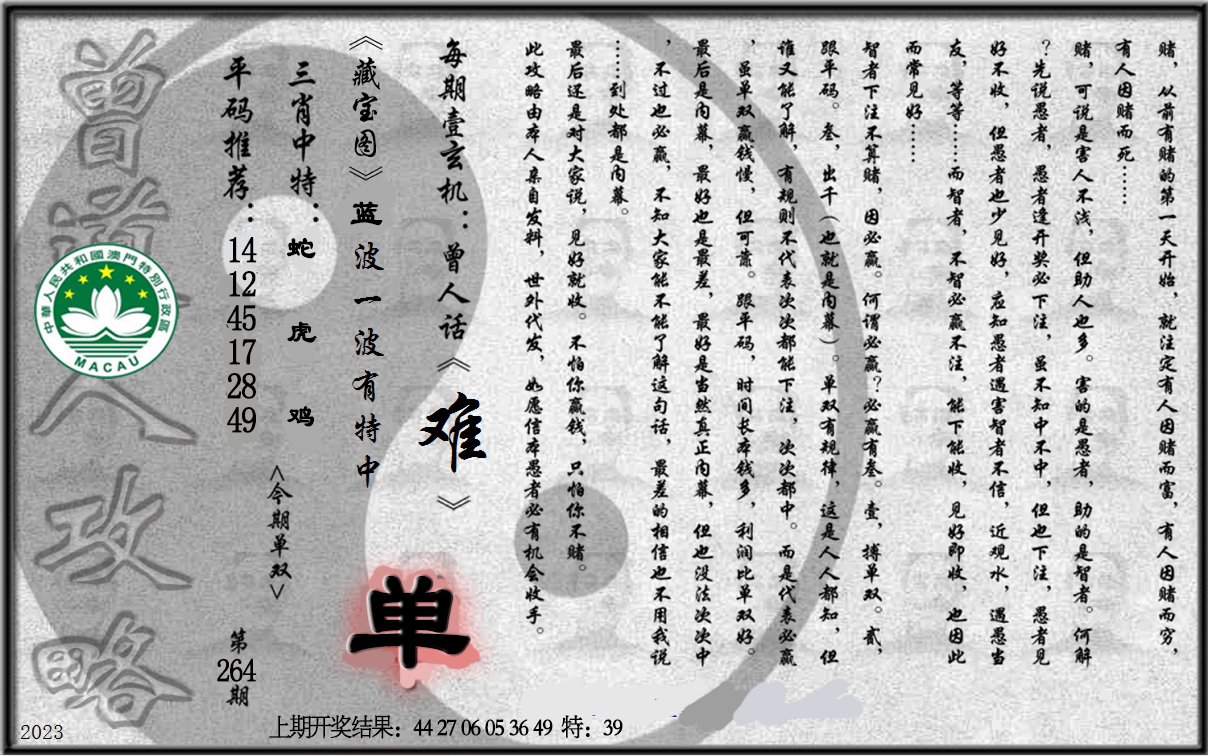 赌，从前有赌的第一天开始，就注定有人因赌而富，有人因赌而穷，
有人因赌而死……
赌，可说是害人不浅，但助人也多。害的是愚者，助的是智者。何解
？先说愚者，愚者逢开奖必下注，虽不知中不中，但也下注，愚者见
好不收，但愚者也少见好，应知愚者遇害智者不信，近观水，遇愚当
友，等等……而智者，不智必赢不注，能下能收，见好即收，也因此
而常见好……
智者下注不算赌，因必赢。何谓必赢？必赢有叁。壹，搏单双。贰，
跟平码。叁，出千（也就是内幕）。单双有规律，这是人人都知，但
谁又能了解，有规则不代表次次都能下注，次次都中。而是代表必赢
，虽单双赢钱慢，但可靠。跟平码，时间长本钱多，利润比单双好。
最后是内幕，最好也是最差，最好是当然真正内幕，但也没法次次中
，不过也必赢，不知大家能不能了解这句话，最差的相信也不用我说
……到处都是内幕。
最后还是对大家说，见好就收。不怕你赢钱，只怕你不赌。
此攻略由本人亲自发料，世外代发，如愿信本愚者必有机会收手。
每期壹玄机：曾人话《难》
《藏宝图》蓝波一波有特中
单
三肖中特：蛇 虎 鸡
<今期单双>
平码推荐：14 12 45 17 28 49
第264期
曾道人攻略
中華人民共和國澳門特別行政區
MACAU
2023
上期开奖结果：44 27 06 05 36 49 特：39